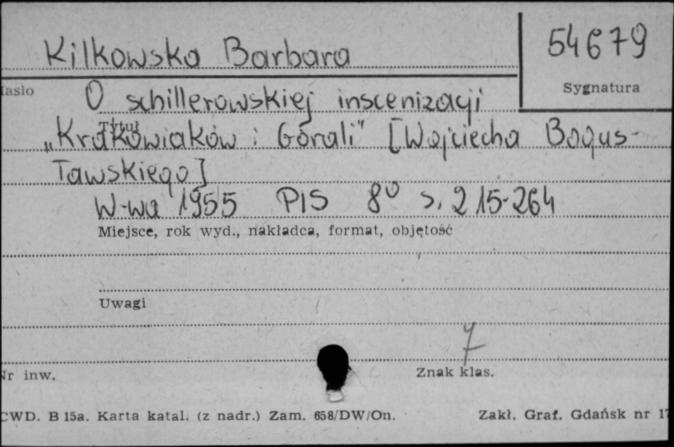 Kilkowska Barbara
54679
Sygnatura
O schillerowskiej inscenizacji
Tytuł
„Krakowiaków i Górali" [Wojciecha Bogus-
ławskiego]
W-wa 1955 PIS 8° s. 215-264
Miejsce, rok wyd., nakładca, format, objętość
Uwagi
7
Nr inw.
Znak klas.
CWD. B 15a. Karta katal. (z nadr.) Zam. 658/DW/On.
Zakł. Graf. Gdańsk nr